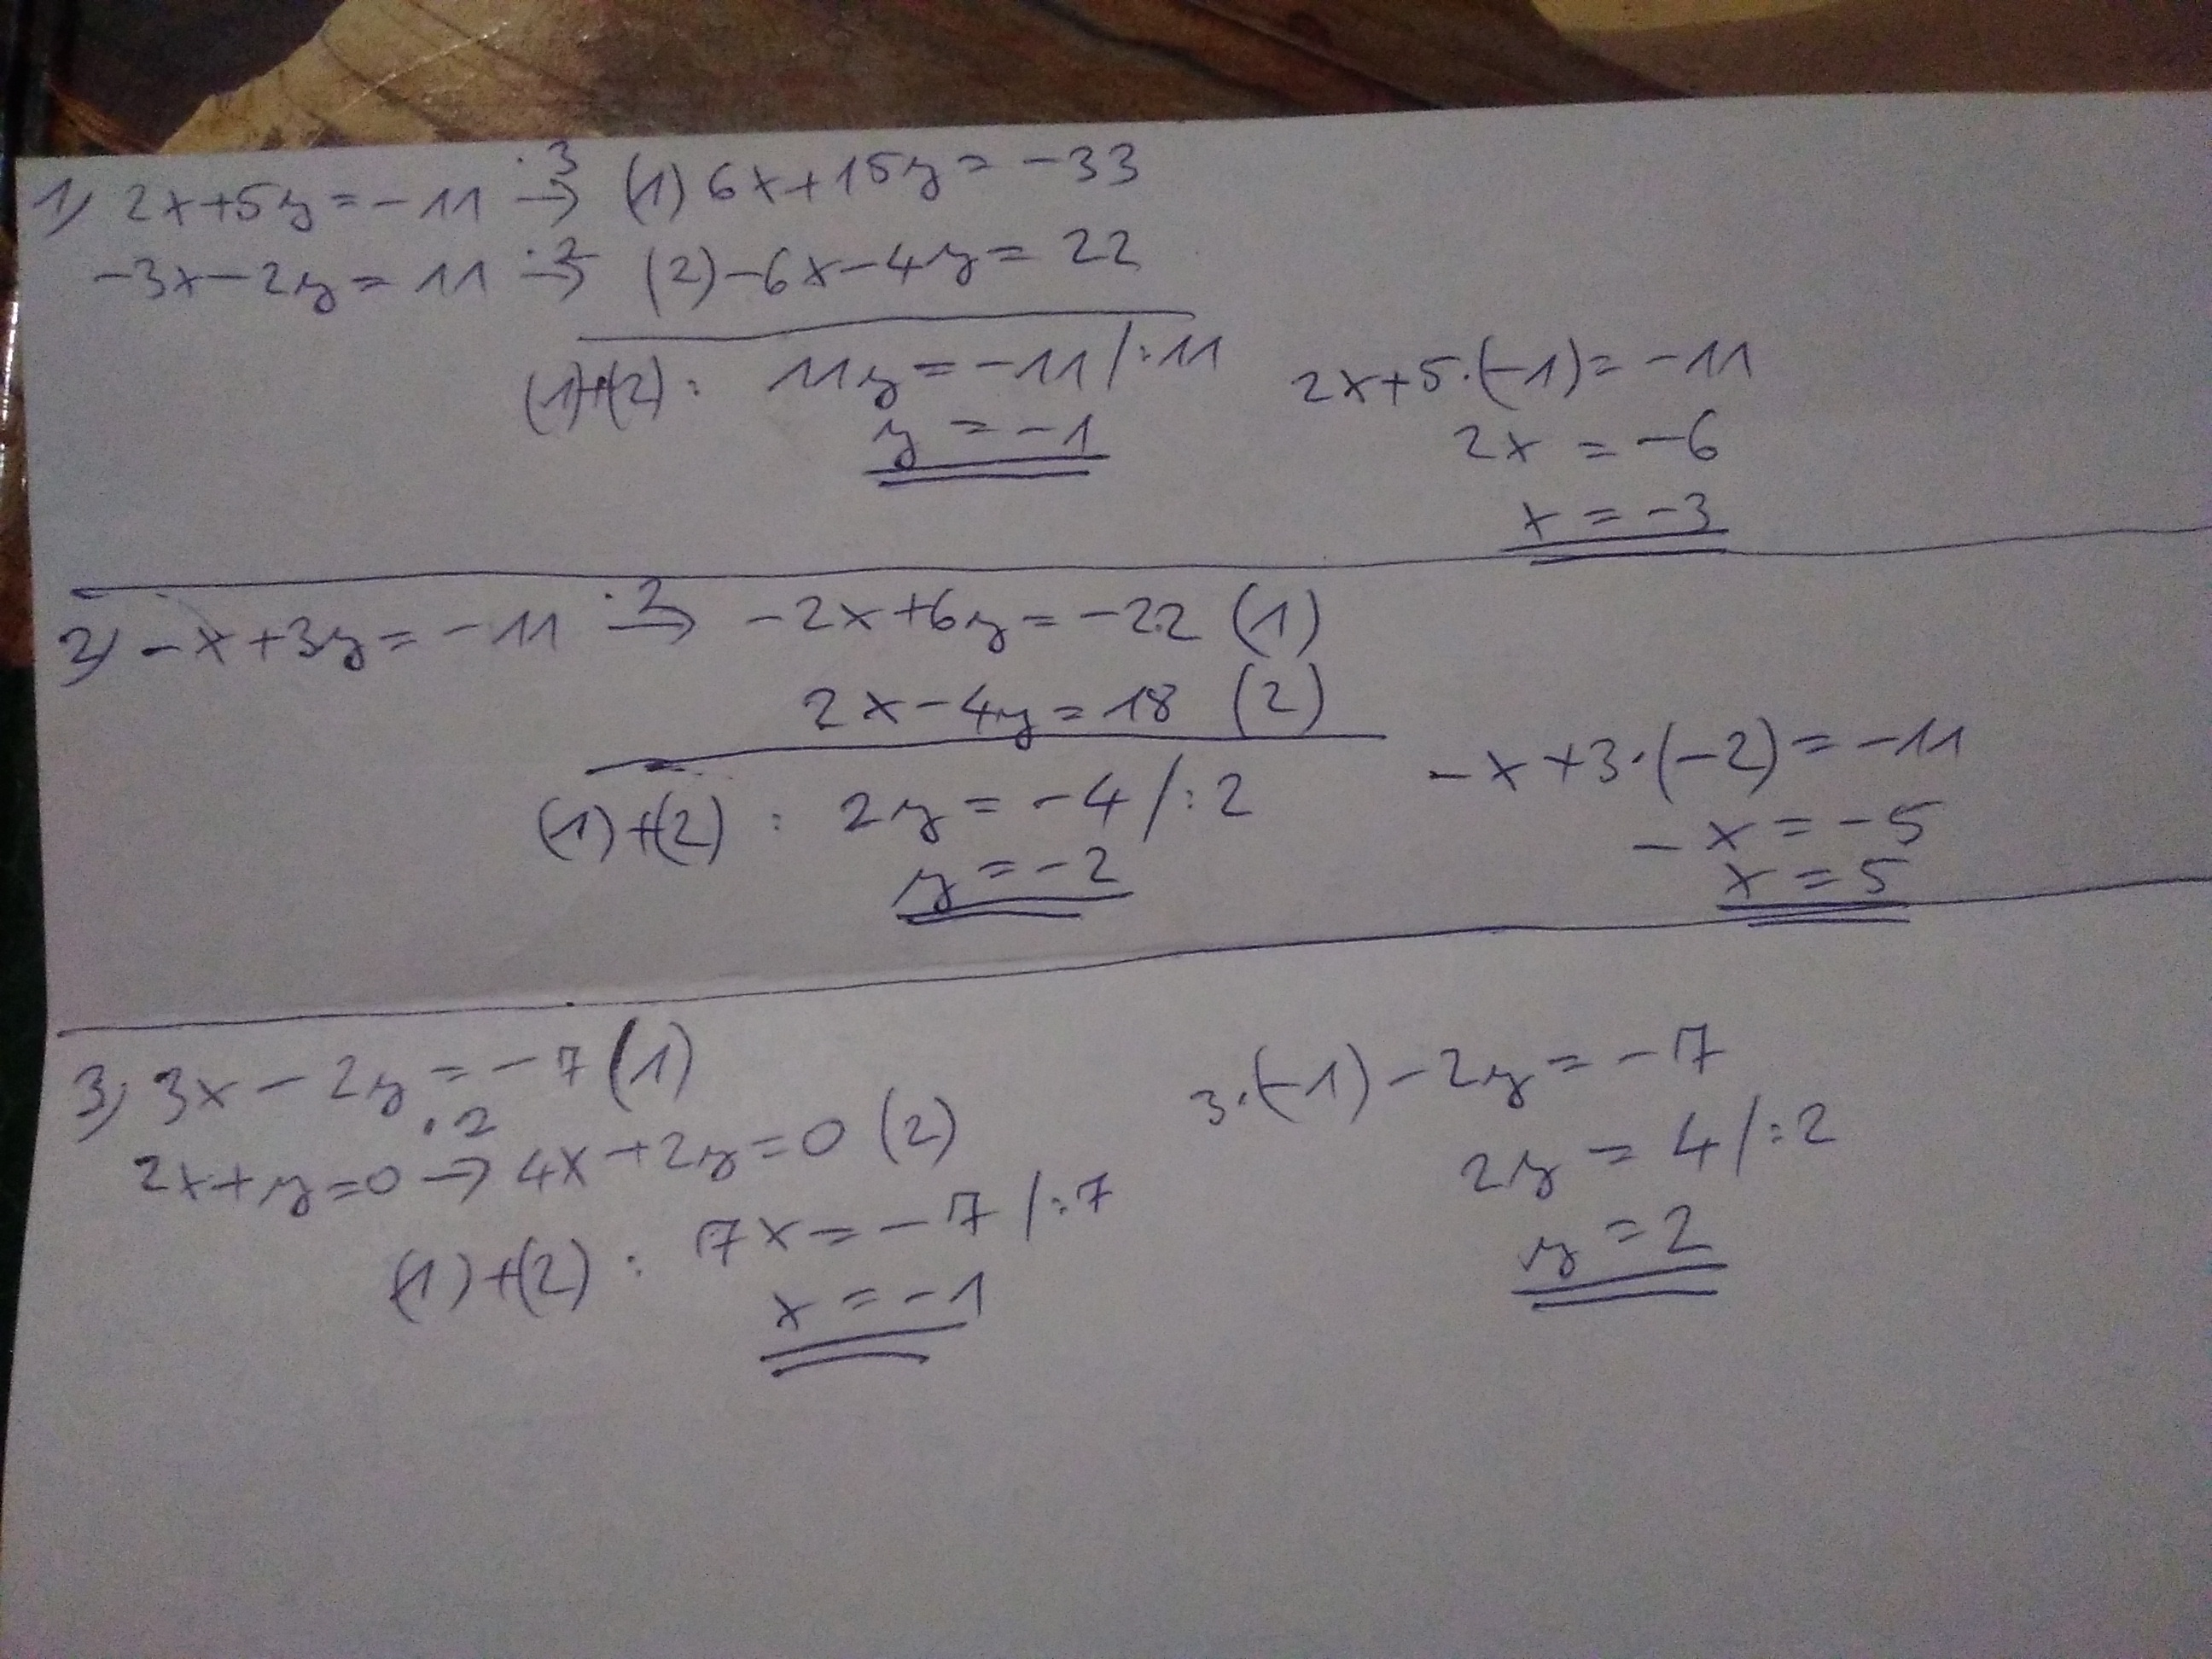 1) 2x+5y=-11 ·3→ (1) 6x+15y=-33
-3x-2y=11 ·2→ (2) -6x-4y=22
(1)+(2): 11y=-11/:11
y=-1
2x+5·(-1)=-11
2x=-6
x=-3
2) -x+3y=-11 ·2→ -2x+6y=-22 (1)
2x-4y=18 (2)
(1)+(2): 2y=-4/:2
y=-2
-x+3·(-2)=-11
-x=-5
x=5
3) 3x-2y=-7 (1)
2x+y=0 ·2→ 4x+2y=0 (2)
(1)+(2): 7x=-7/:7
x=-1
3·(-1)-2y=-7
2y=4/:2
y=2